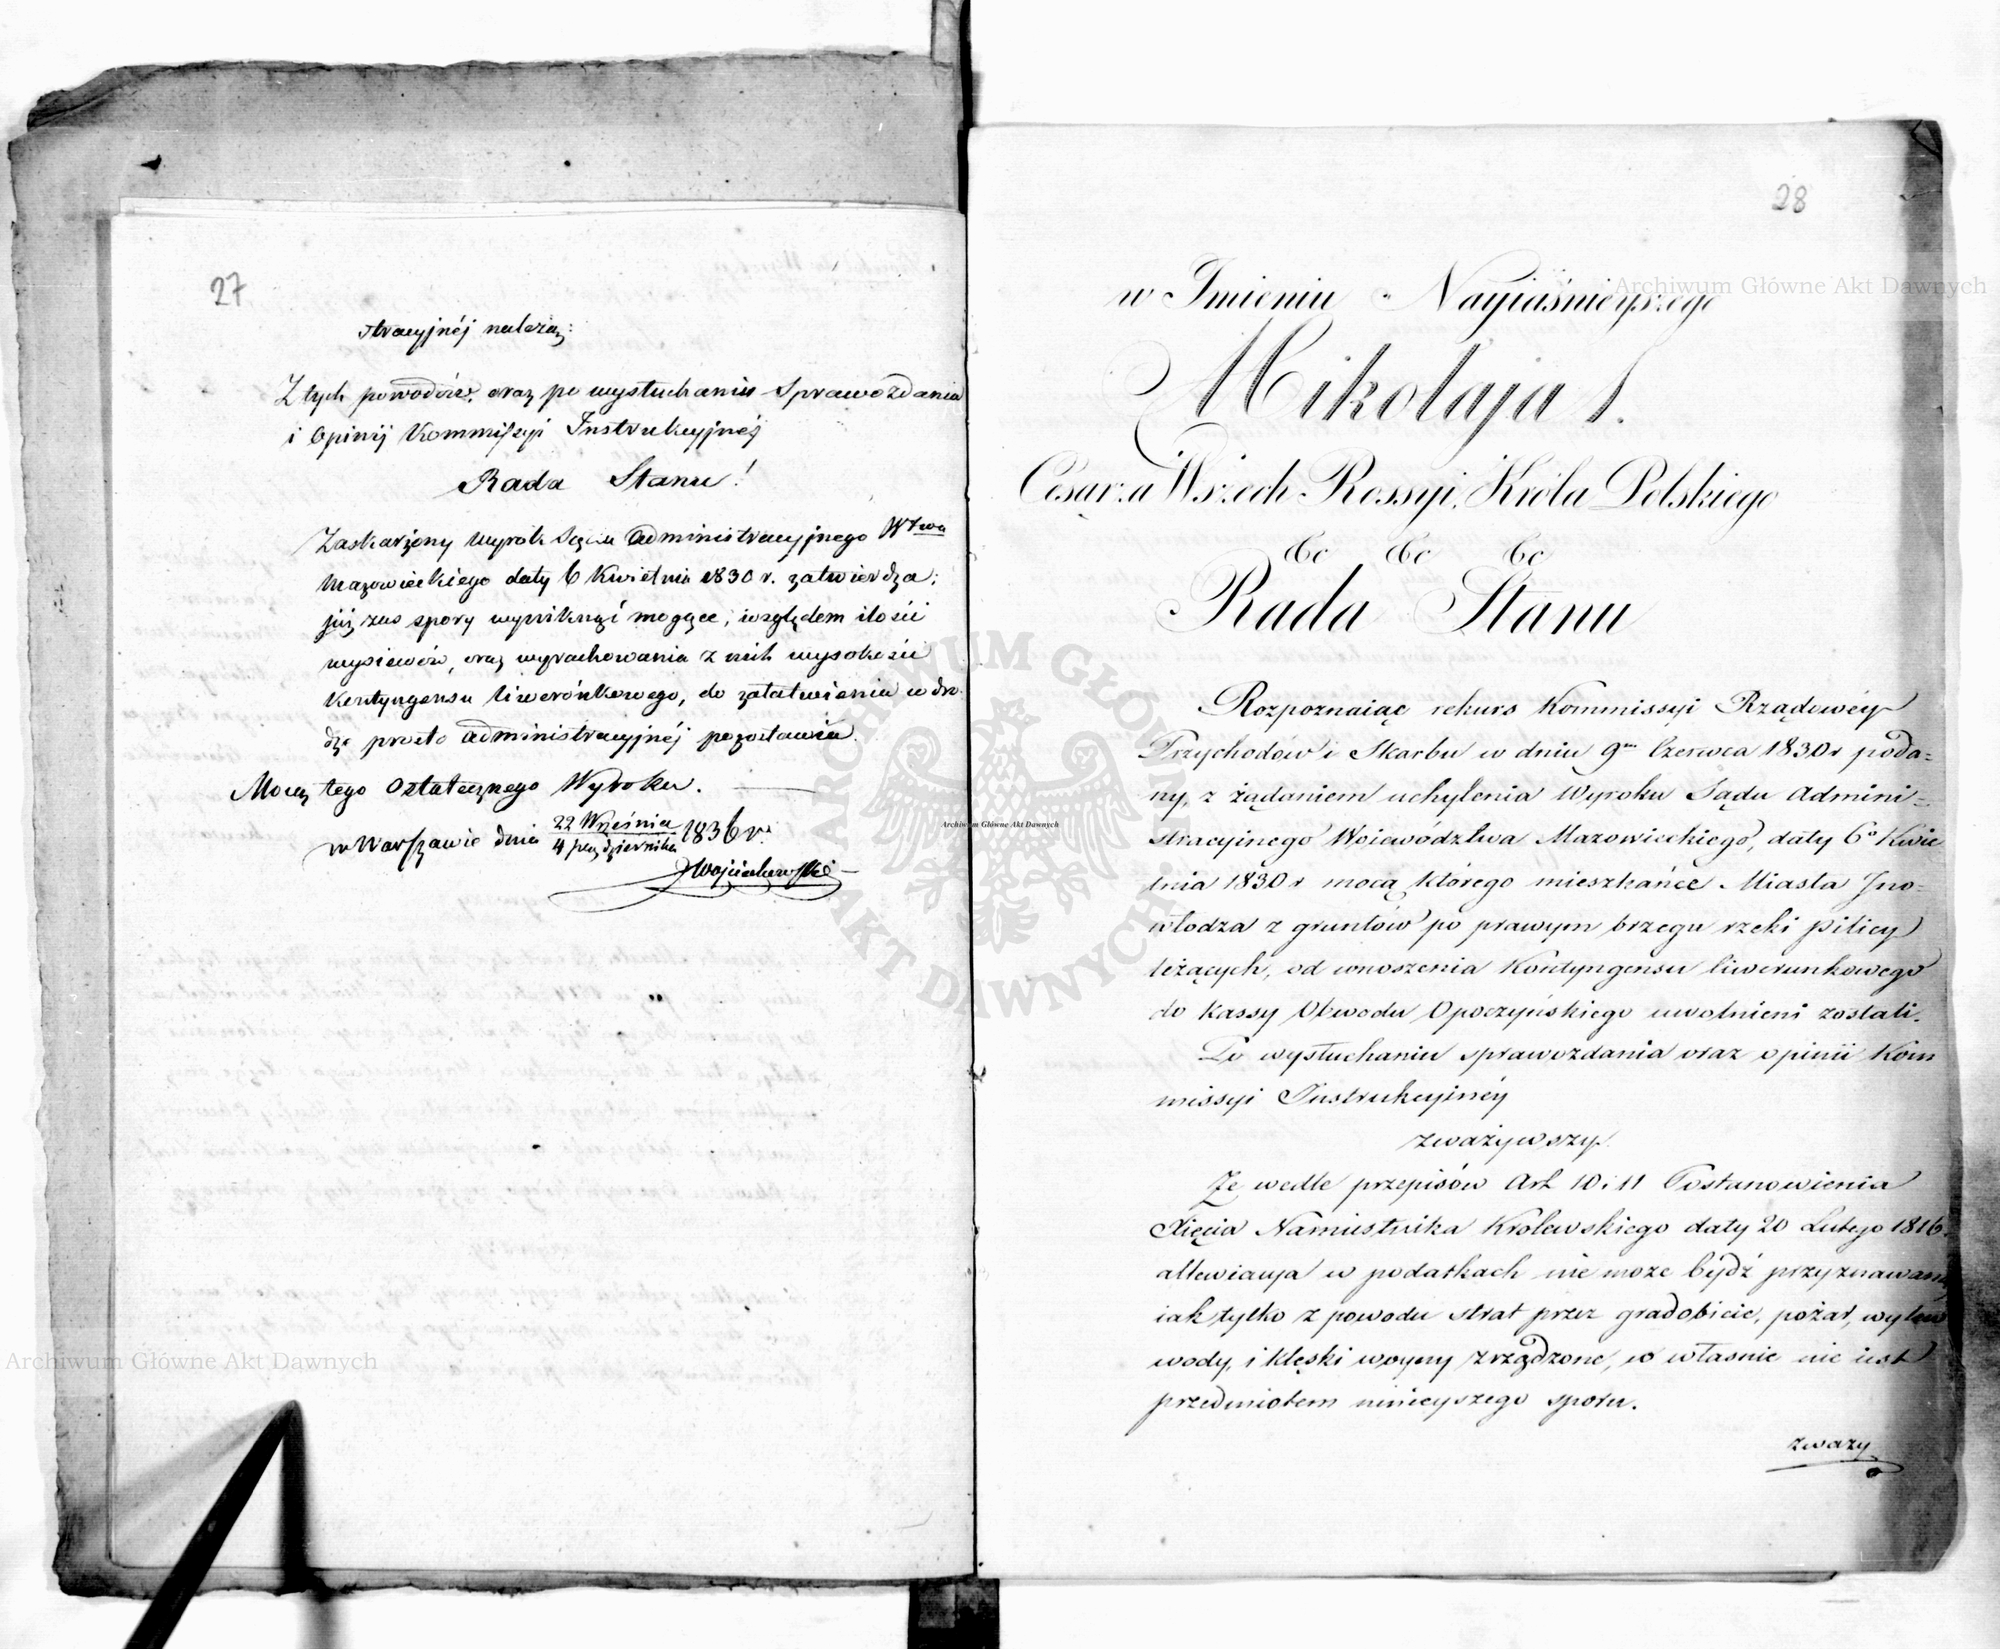 27
stracyjnéj należą:
Z tych powodów, oraz po wysłuchaniu Sprawozdania
i Opinij Kommissyi Instrukcyjnéj
Rada Stanu!
Zaskarżony wyrok Sądu Administracyjnego Wtwa
Mazowieckiego daty 6 Kwietnia 1830 r. zatwierdza;
już zas spory wyniknąć mogące, względem ilości
wysiewów, oraz wyrachowania z nich wysokości
Kontyngensu liwerónkowego, do załatwienia w dro-
dze prosto administracyjnéj pozostawia.
Mocą tego Ostatecznego Wyroku.
w Warszawie dnia 22 Września / 4 października 1836 r.
Wojciechowski
28
w Imieniu Nayiaśnieyszego
Mikołaja I.
Cesarza Wszech Rossyi, Króla Polskiego
&c &c &c
Rada Stanu
Rozpoznaiąc rekurs Kommissyi Rządowéy
Przychodów i Skarbu w dniu 9m Czerwca 1830 r poda-
ny, z żądaniem uchylenia Wyroku Sądu Admini-
stracyinego Woiewodztwa Mazowieckiego, daty 6o Kwie
tnia 1830 r mocą którego mieszkańce Miasta Ino-
włodza z gruntów po prawym brzegu rzeki Pilicy
leżących, od wnoszenia Kontyngensu liwerunkowego
do Kassy Obwodu Opoczyńskiego uwolnieni zostali.
Po wysłuchaniu sprawozdania oraz opinii Kom
missyi Instrukcyinéy
zważywszy.
Że wedle przepisów Art 10 i 11 Postanowienia
Xięcia Namiestnika Królewskiego daty 20 Lutego 1816
allewiacya w podatkach nie może bydź przyznawaną
iak tylko z powodu strat przez gradobicie, pożar, wylew
wody, i klęski woyny zrządzone, co własnie nie iest
przedmiotem ninieyszego sporu.
zważy
Archiwum Główne Akt Dawnych
Archiwum Główne Akt Dawnych
Archiwum Główne Akt Dawnych
ARCHIWUM GŁÓWNE AKT DAWNYCH